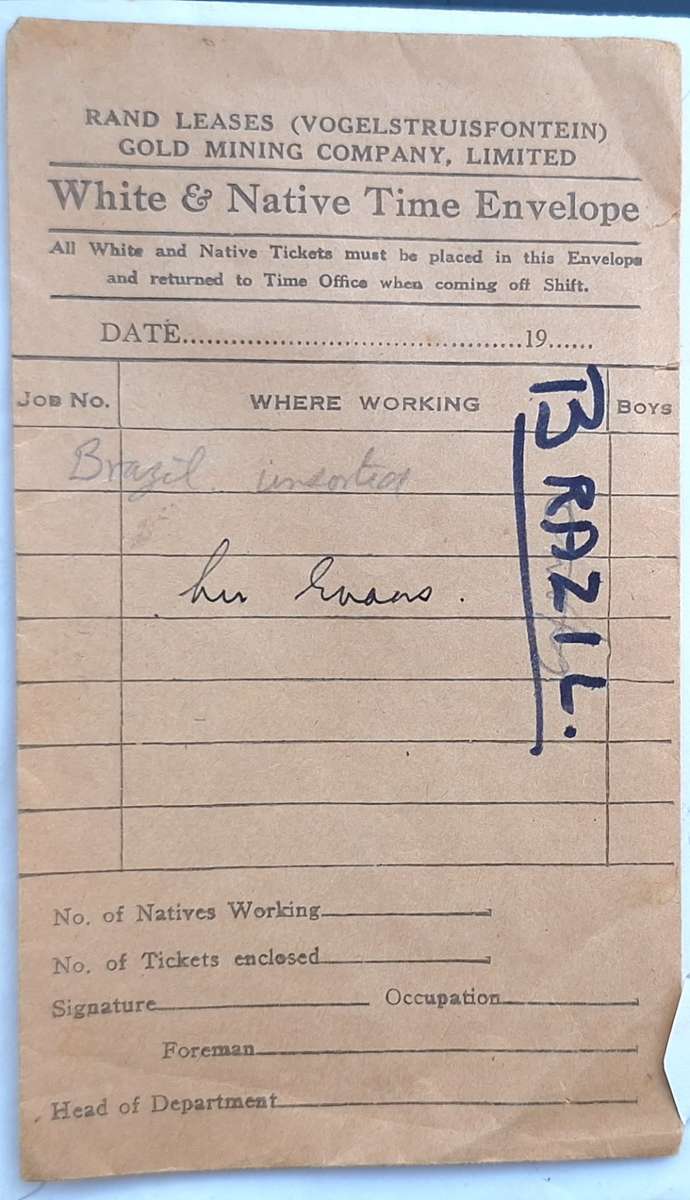 RAND LEASES (VOGELSTRUISFONTEIN)
GOLD MINING COMPANY, LIMITED
White & Native Time Envelope
All White and Native Tickets must be placed in this Envelope
and returned to Time Office when coming off Shift.
DATE..........................................19......
JOB NO. WHERE WORKING BOYS
Brazil unsorted
Evans.
BRAZIL.
No. of Natives Working
No. of Tickets enclosed
Signature Occupation
Foreman
Head of Department